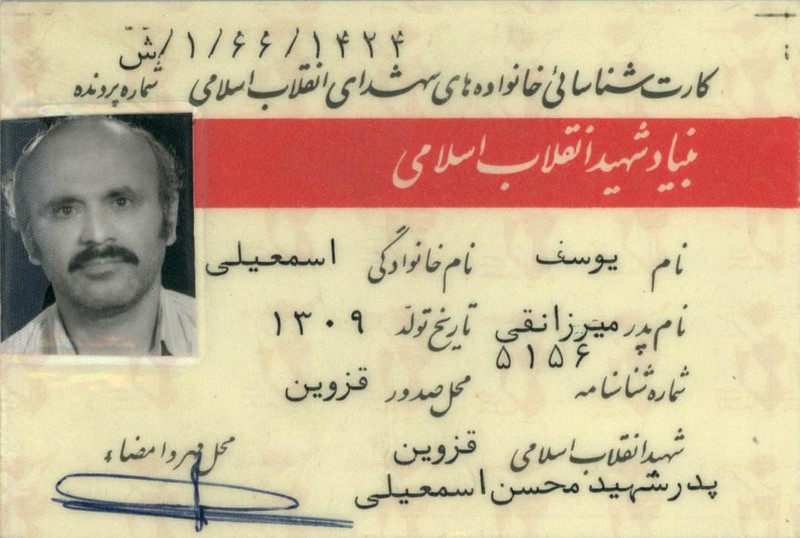 ۱۴۲۴/۶۶/۱/ش
کارت شناسائی خانواده های شهدای انقلاب اسلامی شماره پرونده
بنیاد شهید انقلاب اسلامی
نام یوسف نام خانوادگی اسمعیلی
نام پدر میرزانقی تاریخ تولد ۱۳۰۹
شماره شناسنامه ۵۱۵۶ محل صدور قزوین
شهید انقلاب اسلامی قزوین محل مهر و امضاء
پدر شهید محسن اسمعیلی